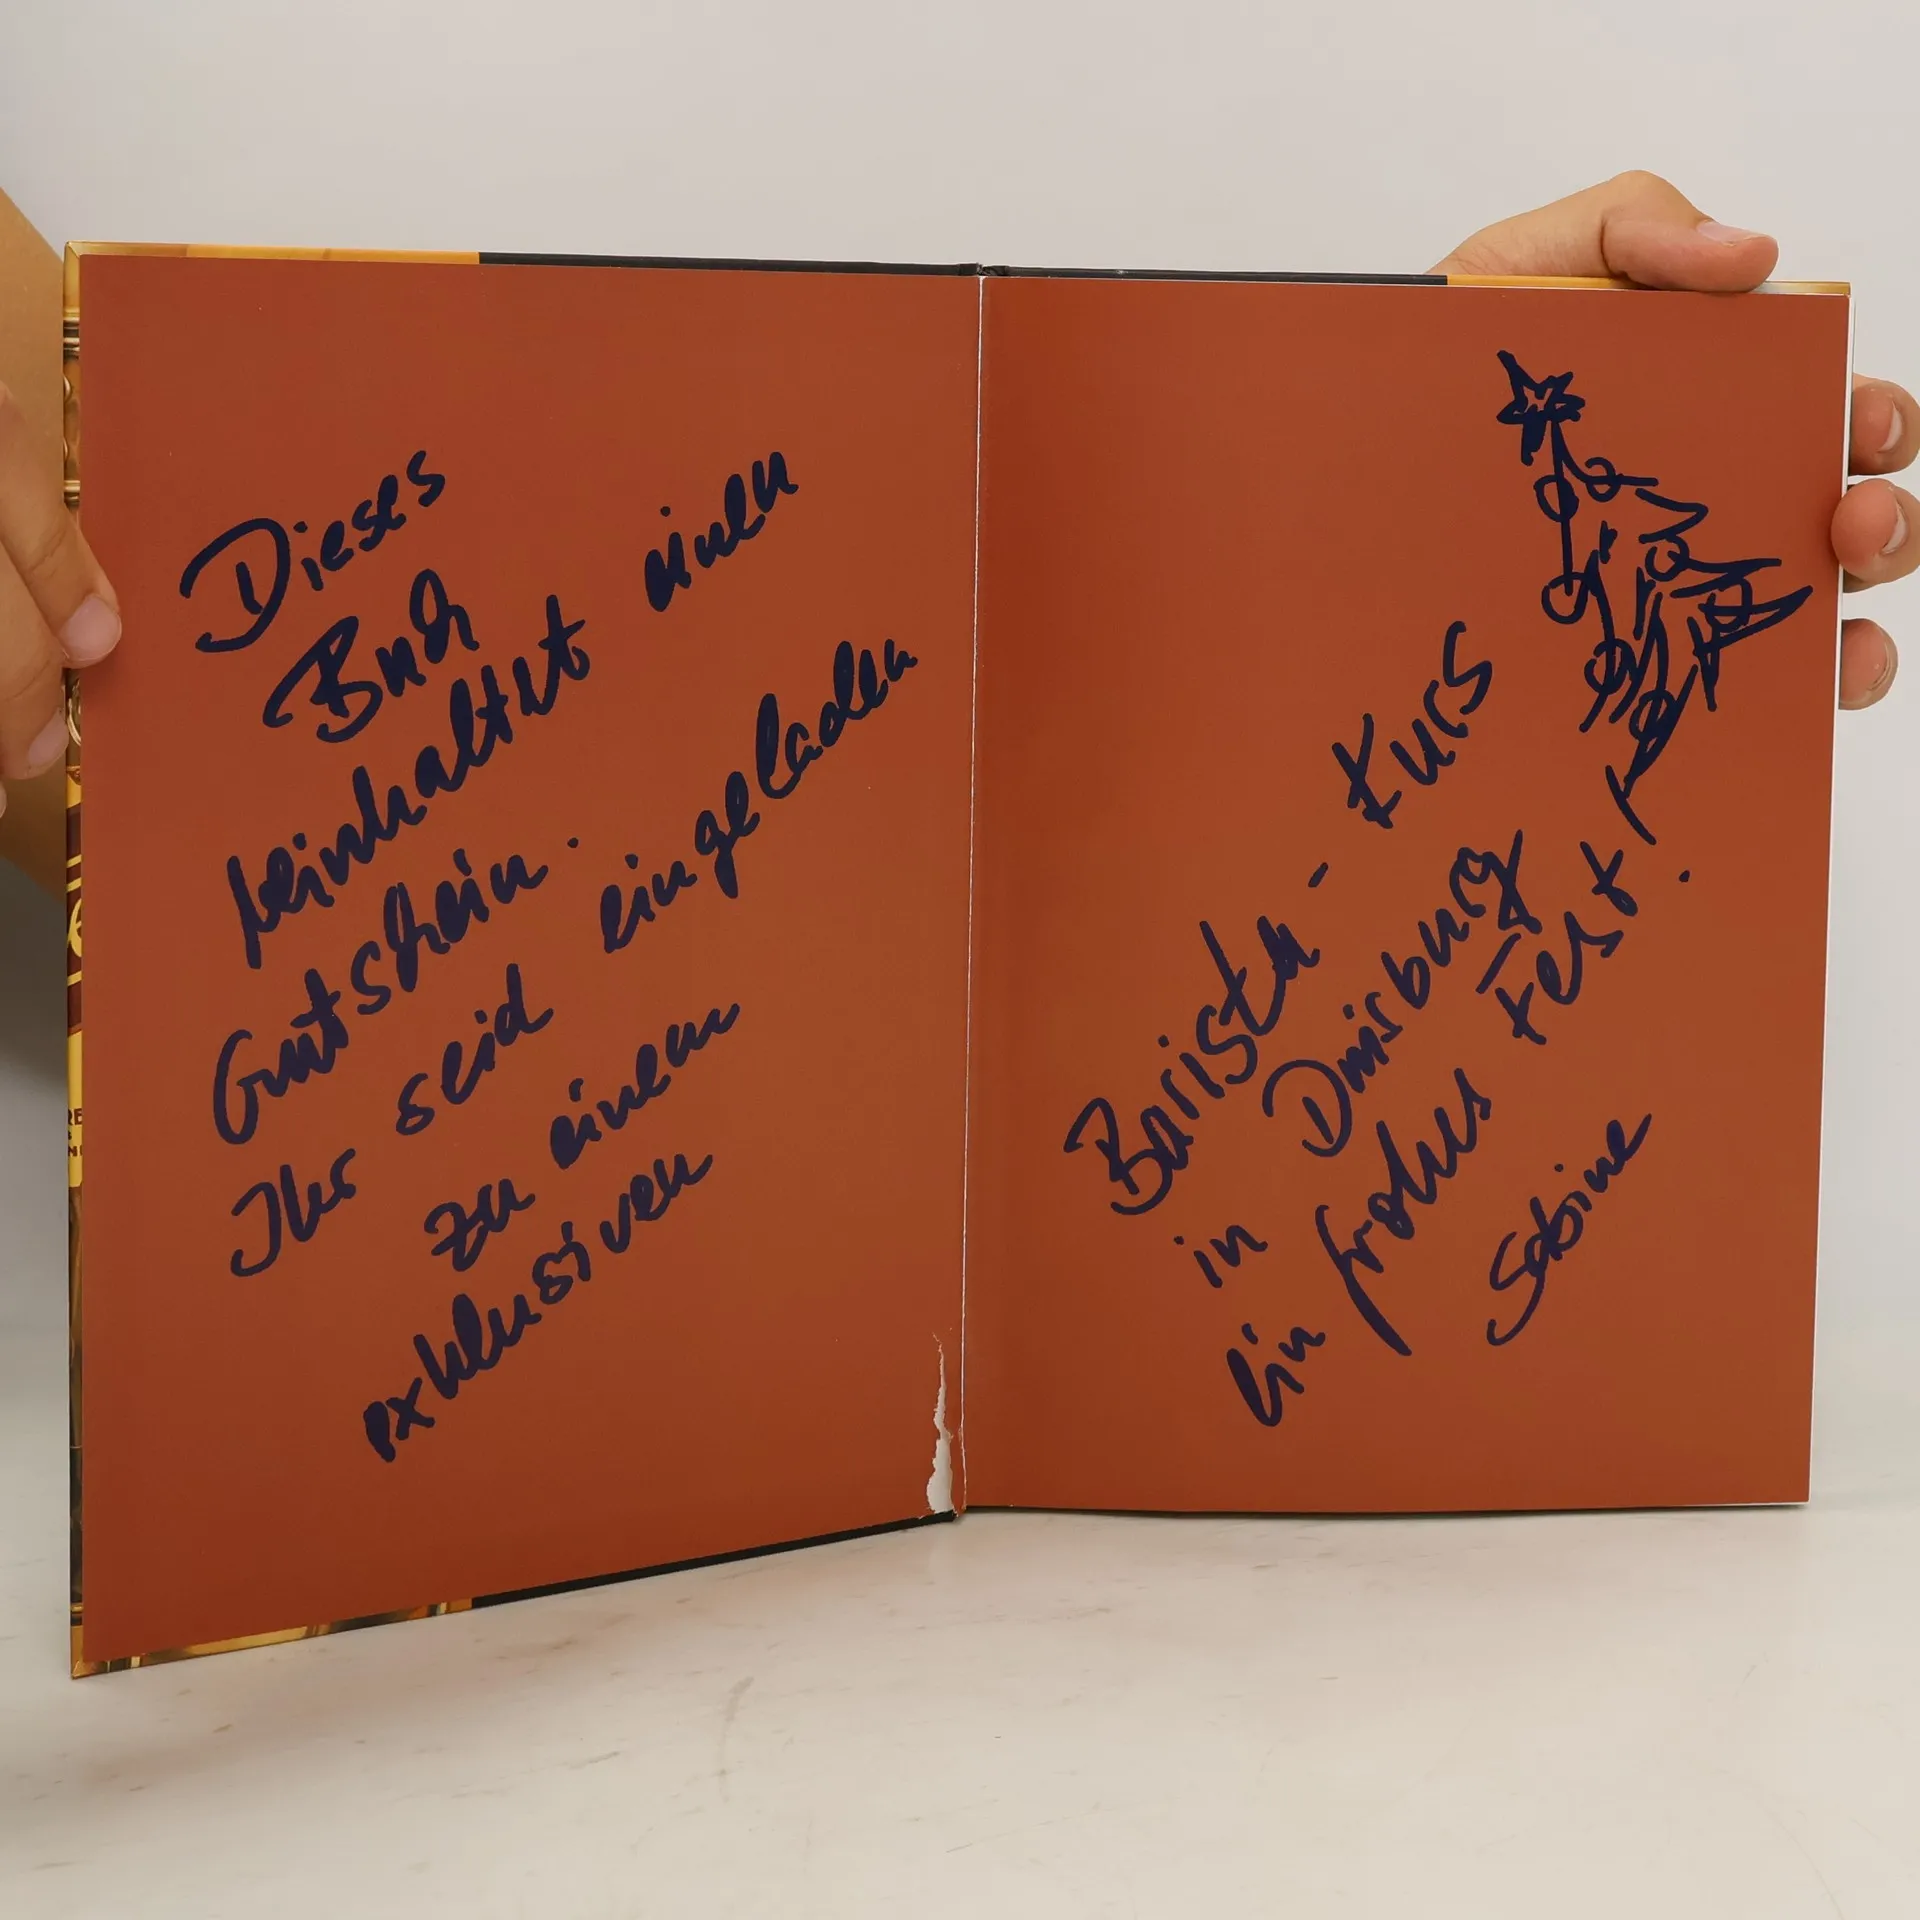 Dieses
Buch
beinhaltet einen
Gutschein.
Ihr seid eingeladen
zu einem
exklusiven
Barista-Kurs
in Duisburg
Ein frohes Fest.
Sabine